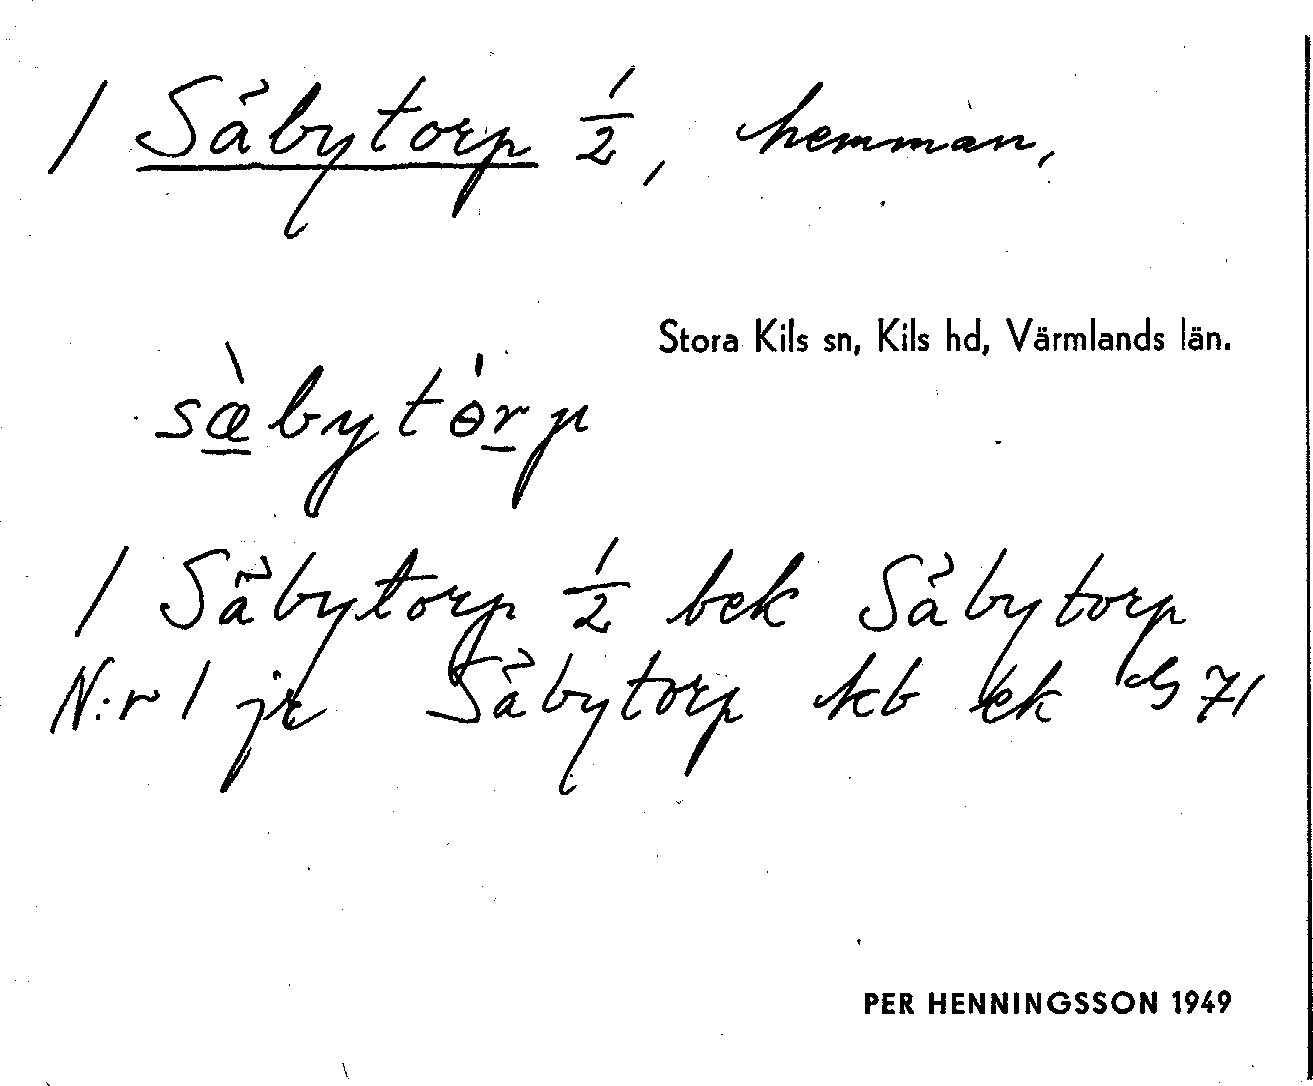 1 Såbytorp ½, hemman,
Stora Kils sn, Kils hd, Värmlands län.
sæ̀bytɵ́rp
1 Såbytorp ½ bek Såbytorp
N:r 1 jr Såbytorp kb ek 71
PER HENNINGSSON 1949